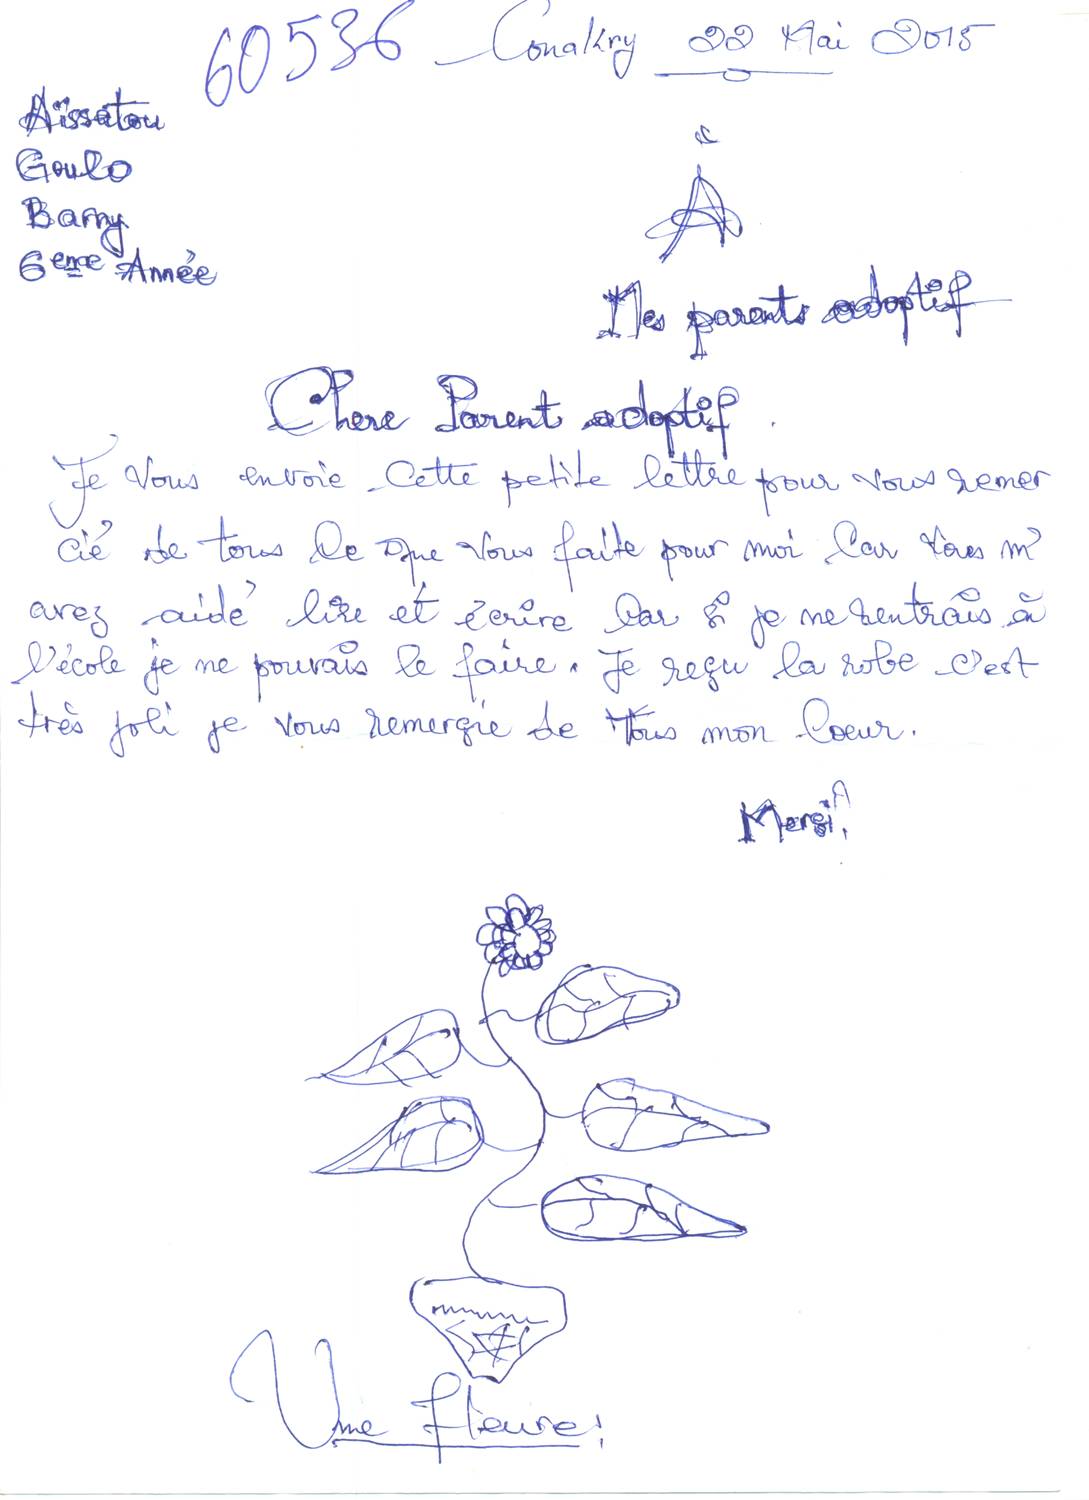 60536 Conakry 22 Mai 2015
Aïssatou
Goulo
Barry
6eme Année
À
Mes parents adoptif
Chere Parent adoptif.
Je Vous envoie Cette petite lettre pour vous remer
cié de tous Ce que Vous faite pour moi Car Vous m'
avez aidé lire et écrire Car si je ne rentrais à
l'école je ne pouvais le faire. Je reçu la robe c'est
très joli je vous remergie de Tous mon Coeur.
Mergi!
Une fleure!